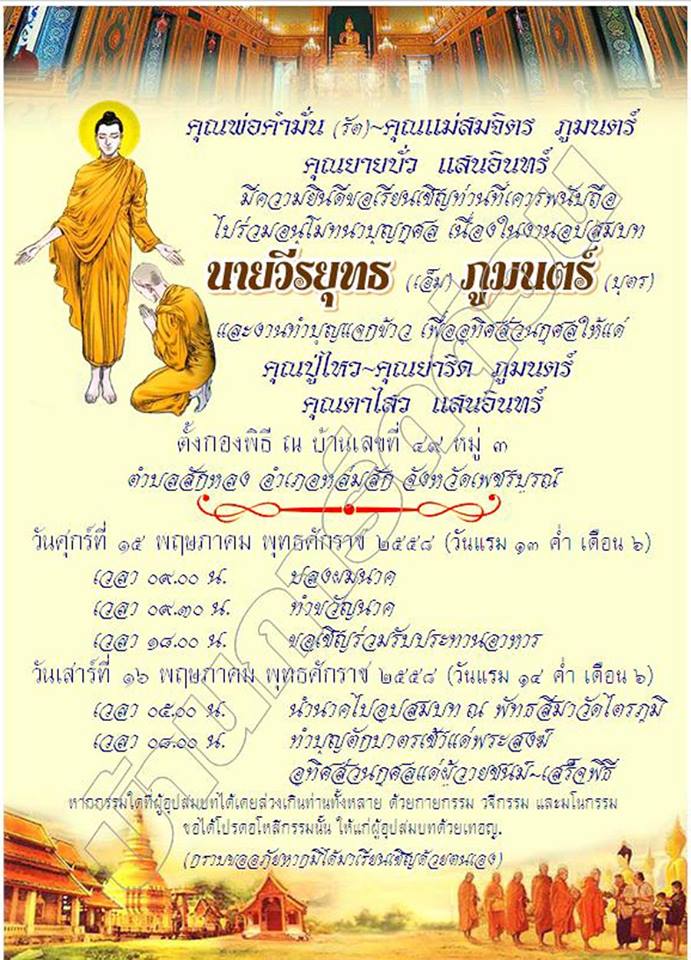 คุณพ่อคำมั่น (รัด)~คุณแม่สมจิตร ภูมนตร์
คุณยายบั่ว แสนอินทร์
มีความยินดีขอเรียนเชิญท่านที่เคารพนับถือ
ไปร่วมอนุโมทนาบุญกุศล เนื่องในงานอุปสมบท
นายวีรยุทธ (เอ็ม) ภูมนตร์ (บุตร)
และงานทำบุญแจกข้าว เพื่ออุทิศส่วนกุศลให้แด่
คุณปู่ไหว~คุณย่าริด ภูมนตร์
คุณตาไสว แสนอินทร์
ตั้งกองพิธี ณ บ้านเลขที่ ๔๙ หมู่ ๓
ตำบลสักหลง อำเภอหล่มสัก จังหวัดเพชรบูรณ์
วันศุกร์ที่ ๑๕ พฤษภาคม พุทธศักราช ๒๕๕๘ (วันแรม ๑๓ ค่ำ เดือน ๖)
เวลา ๐๙.๐๐ น. ปลงผมนาค
เวลา ๐๙.๓๐ น. ทำขวัญนาค
เวลา ๑๘.๐๐ น. ขอเชิญร่วมรับประทานอาหาร
วันเสาร์ที่ ๑๖ พฤษภาคม พุทธศักราช ๒๕๕๘ (วันแรม ๑๔ ค่ำ เดือน ๖)
เวลา ๐๕.๐๐ น. นำนาคไปอุปสมบท ณ พัทธสีมาวัดไตรภูมิ
เวลา ๐๘.๐๐ น. ทำบุญตักบาตรเช้าแด่พระสงฆ์
อุทิศส่วนกุศลแด่ผู้วายชนม์~เสร็จพิธี
หากกรรมใดที่ผู้อุปสมบทได้เคยล่วงเกินท่านทั้งหลาย ด้วยกายกรรม วจีกรรม และมโนกรรม
ขอได้โปรดอโหสิกรรมนั้น ให้แก่ผู้อุปสมบทด้วยเทอญ.
(กราบขออภัยหากมิได้มาเรียนเชิญด้วยตนเอง)